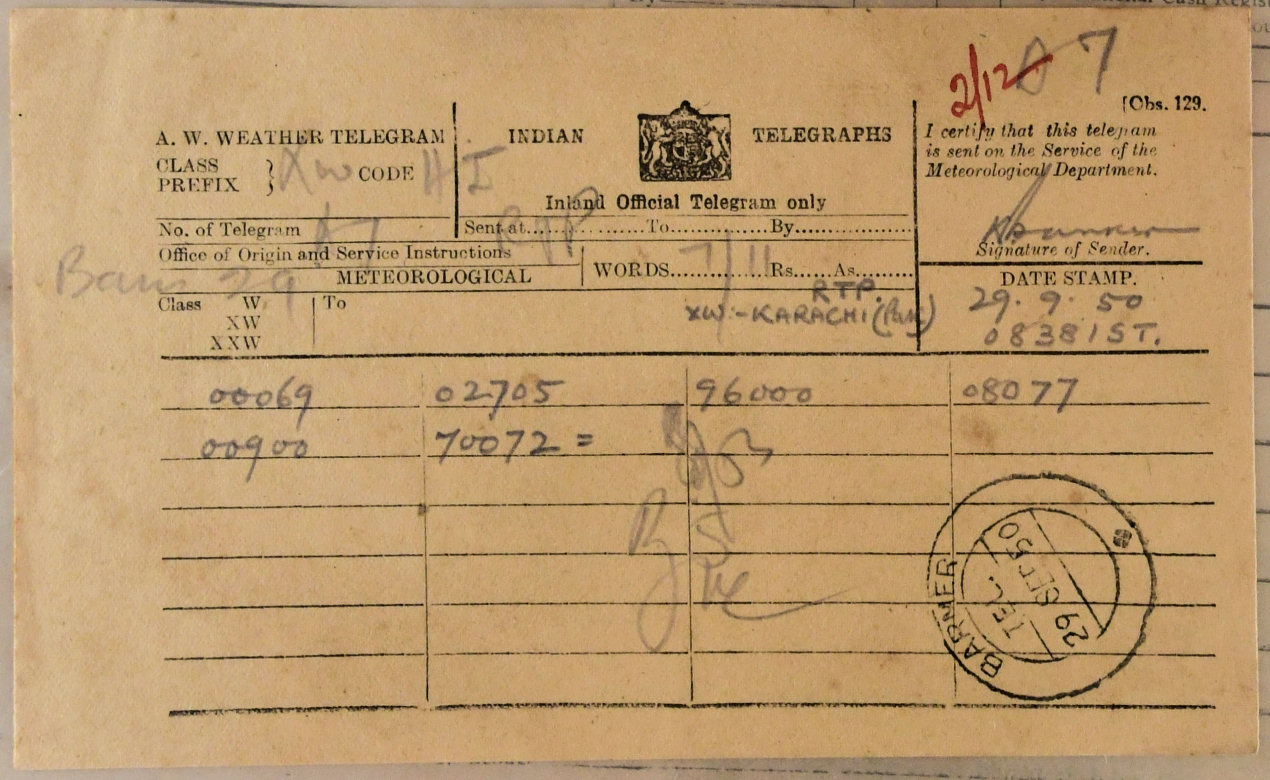 2/12 A7
[Obs. 129.
A. W. WEATHER TELEGRAM
CLASS PREFIX } XW CODE H I
INDIAN TELEGRAPHS
Inland Official Telegram only
I certify that this telegram
is sent on the Service of the
Meteorological Department.
No. of Telegram A7
Sent at..........To..........By..........
Signature of Sender.
Office of Origin and Service Instructions
METEOROLOGICAL
WORDS 7/11 Rs.....As.........
DATE STAMP.
29.9.50
0838 IST.
Class W.
XW
XXW
To
RTP.
XW-KARACHI (Pak)
00069 02705 96000 08077
00900 70072 =
BARMER
TEL.
29 SEP 50